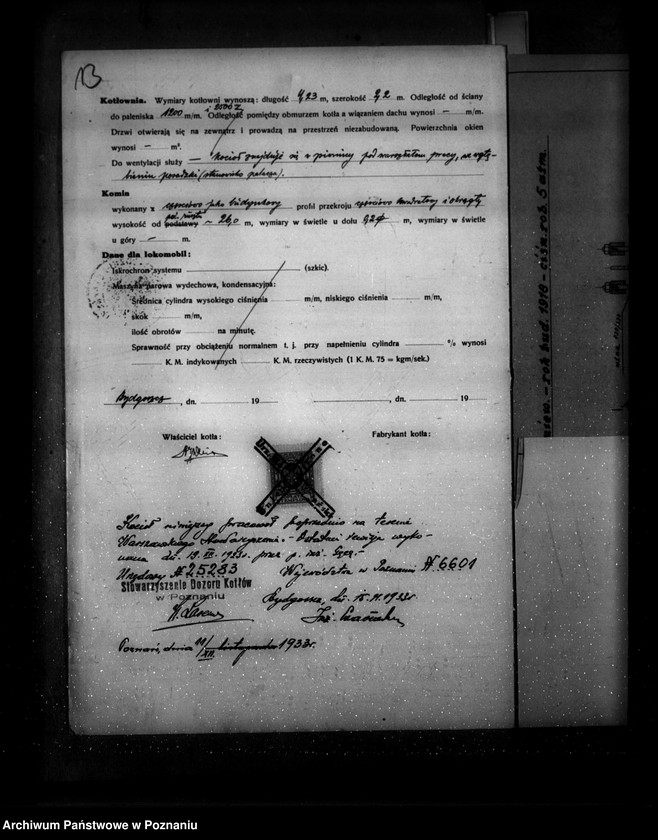 13
Kotłownia. Wymiary kotłowni wynoszą: długość 4,23 m, szerokość 2,2 m. Odległość od ściany
i 2500
do paleniska 1200 m/m. Odległość pomiędzy obmurzem kotła a wiązaniem dachu wynosi – m/m.
Drzwi otwierają się na zewnątrz i prowadzą na przestrzeń niezabudowaną. Powierzchnia okien
wynosi – m².
Do wentylacji służy — kocioł znajduje się w piwnicy pod warsztatem pracy, w
bieniu posadzki (stanowisko palacza).
Komin
wykonany z częściowo jako budynkowy profil przekroju częściowo kwadratowy i okrągły
wysokość od podstawy ~ 26,0 m, wymiary w świetle u dołu 920 m, wymiary w świetle
u góry – m.
Dane dla lokomobil:
Iskrochron systemu (szkic).
Maszyna parowa wydechowa, kondensacyjna:
Średnica cylindra wysokiego ciśnienia m/m, niskiego ciśnienia m/m,
skok m/m,
ilość obrotów na minutę.
Sprawność przy obciążeniu normalnem t. j. przy napełnieniu cylindra % wynosi
K. M. indykowanych K. M. rzeczywistych (1 K. M. 75 = kgm/sek.)
Bydgoszcz, dn. 19 , dn. 19
Właściciel kotła: Fabrykant kotła:
Kocioł niniejszy pracował poprzednio na terenie
Warszawskiego Stowarzyszenia. – Ostatni rewizja wyko-
nana dn. 19. III. 1932r. przez p. inż.
Urzędowy № 25283 Województwa w Poznaniu № 6601
Stowarzyszenie Dozoru Kotłów
w Poznaniu
Bydgoszcz, dn. 15. XI. 1933r.
Inż.
Poznań, dnia 11/XII. listopada 1933r.
rok bud. 1916 – ciśn. rob. 5 atm.
Archiwum Państwowe w Poznaniu